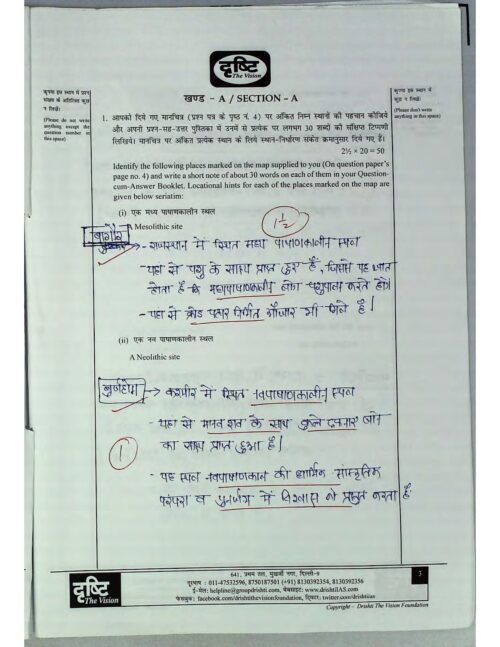 दृष्टि
The Vision
खण्ड - A / SECTION - A
कृपया इस स्थान में प्रश्न
संख्या के अतिरिक्त कुछ
न लिखें।
(Please do not write
anything except the
question number in
this space)
कृपया इस स्थान में
कुछ न लिखें।
(Please don't write
anything in this space)
1. आपको दिये गए मानचित्र (प्रश्न पत्र के पृष्ठ नं. 4) पर अंकित निम्न स्थानों की पहचान कीजिये
और अपनी प्रश्न-सह-उत्तर पुस्तिका में उनमें से प्रत्येक पर लगभग 30 शब्दों की संक्षिप्त टिप्पणी
लिखिये। मानचित्र पर अंकित प्रत्येक स्थान के लिये स्थान-निर्धारण संकेत क्रमानुसार दिये गए हैं।
2½ × 20 = 50
Identify the following places marked on the map supplied to you (On question paper's
page no. 4) and write a short note of about 30 words on each of them in your Question-
cum-Answer Booklet. Locational hints for each of the places marked on the map are
given below seriatim:
(i) एक मध्य पाषाणकालीन स्थल
A Mesolithic site
1½
बागौर
- राजस्थान में स्थित मध्य पाषाणकालीन स्थल
- यहाँ से पशु के साक्ष्य प्राप्त हुए हैं, जिससे यह ज्ञात
होता है कि मध्यपाषाणकालीन लोग पशुपालन करते होंगे।
- यहाँ से पत्थर निर्मित औजार भी मिले हैं।
(ii) एक नव पाषाणकालीन स्थल
A Neolithic site
बुर्जहोम
- कश्मीर में स्थित नवपाषाणकालीन स्थल
- यहाँ से मानव शव के साथ कुत्ते दफनाए जाने
का साक्ष्य प्राप्त हुआ है।
1
- यह स्थल नवपाषाणकाल की धार्मिक सांस्कृतिक
परंपरा व पुनर्जन्म में विश्वास को प्रस्तुत करता है
दृष्टि
The Vision
641, प्रथम तल, मुखर्जी नगर, दिल्ली-9
दूरभाष : 011-47532596, 8750187501 (+91) 8130392354, 8130392356
ई-मेल: helpline@groupdrishti.com, वेबसाइट: www.drishtiIAS.com
फेसबुक: facebook.com/drishtithevisionfoundation, ट्विटर: twitter.com/drishtiias
3
Copyright – Drishti The Vision Foundation